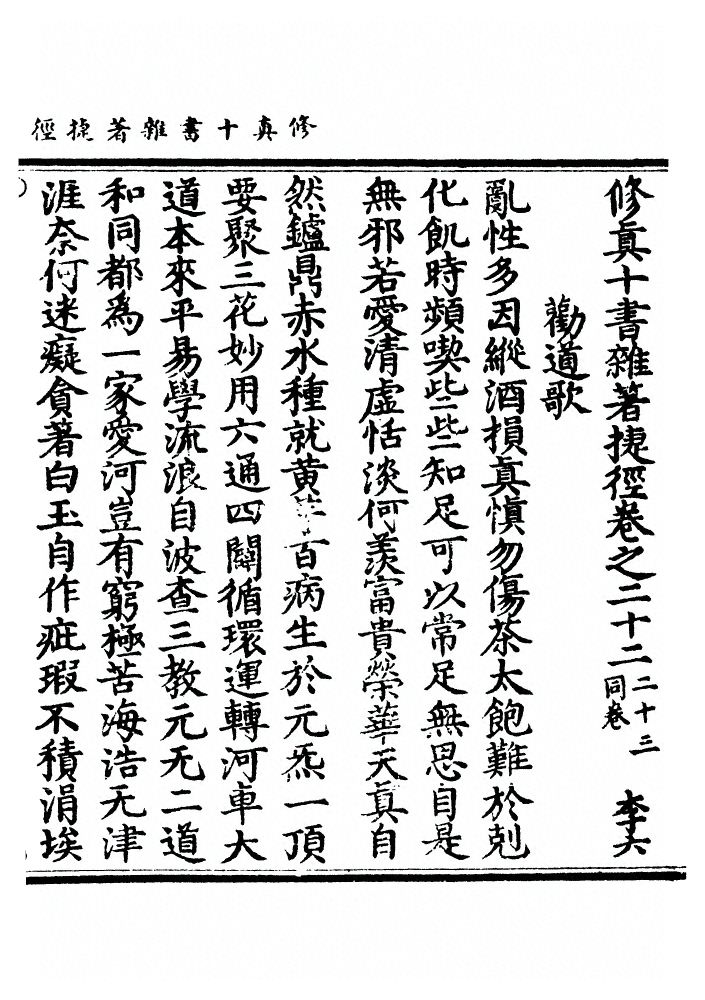 修真十書雜著捷徑
修真十書雜著捷徑卷之二十二 二十三同卷 李六
勸道歌
亂性多因縱酒損真慎勿傷茶太飽難於剋
化飢時頻喫些些知足可以常足無思自是
無邪若愛清虛恬淡何羨富貴榮華天真自
然鑪鼎赤水種就黃芽百病生於元炁一頂
要聚三花妙用六通四闢循環運轉河車大
道本來平易學流浪自波查三教元无二道
和同都為一家愛河豈有窮極苦海浩无津
涯奈何迷癡貪著白玉自作疵瑕不積涓埃